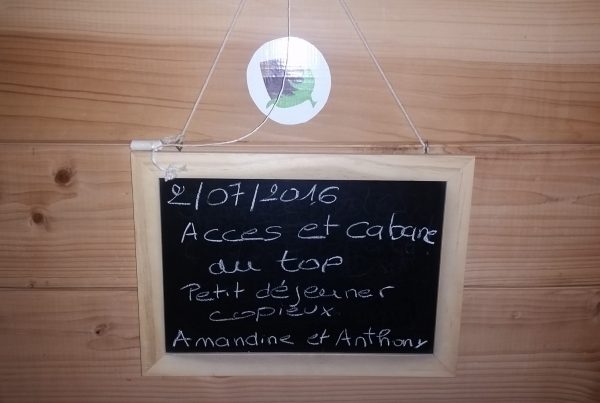 2/07/2016
Acces et cabane
du top
Petit déjeuner
copieux.
Amandine et Anthony